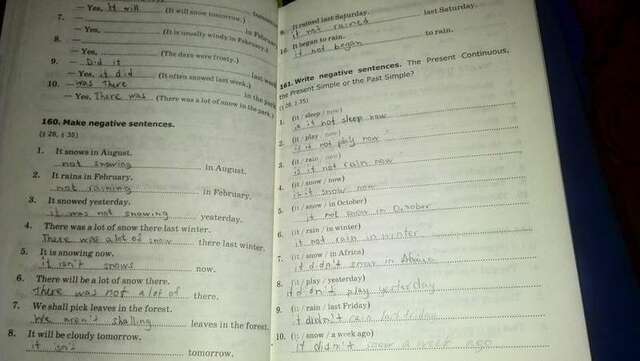 – Yes, It will (It will snow tomorrow.)
7. –
– Yes, (It is usually windy in February.)
8. –
– Yes, (The days were frosty.)
9. – Did it last week
– Yes, it did (It often snowed last week.)
10. – was there in the park
– Yes, There was (There was a lot of snow in the park.)
160. Make negative sentences.
(§ 28, § 35)
1. It snows in August.
not snowing in August.
2. It rains in February.
not raining in February.
3. It snowed yesterday.
it was not snowing yesterday.
4. There was a lot of snow there last winter.
There was a lot of snow there last winter.
5. It is snowing now.
it isn't snows now.
6. There will be a lot of snow there.
There was not a lot of there.
7. We shall pick leaves in the forest.
We aren't shalling leaves in the forest.
8. It will be cloudy tomorrow.
it isn't tomorrow.
9. It rained last Saturday.
it not rained last Saturday.
10. It began to rain.
it not began to rain.
161. Write negative sentences. The Present Continuous,
the Present Simple or the Past Simple?
(§ 28, § 35)
1. (it / sleep / now)
is it not sleep now
2. (it / play / now)
is it not play now
3. (it / rain / now)
is it not rain now
4. (it / snow / now)
it snow now
5. (it / snow / in October)
it not snow in October
6. (it / rain / in winter)
it not rain in winter
7. (it / snow / in Africa)
it didn't snow in Africa
8. (it / play / yesterday)
it didn't play yesterday
9. (it / rain / last Friday)
it didn't rain last friday
10. (it / snow / a week ago)
it didn't snow a week ago